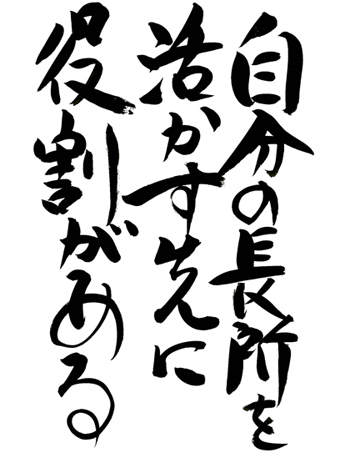 自分の長所を
活かす先に
役割がある